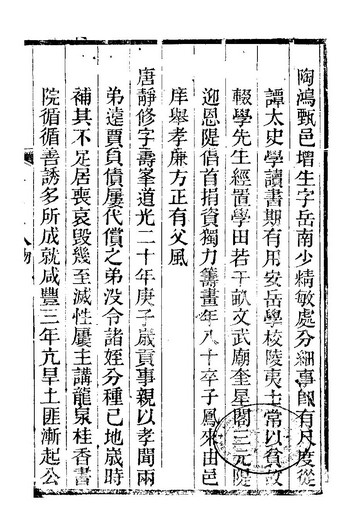 陶鴻甄邑增生字岳南少精敏處分細事卽有尺度從
譚太史學讀書期有用安岳學校陵夷士常以貧故
輟學先生經置學田若干畝文武廟奎星閣三元隄
迎恩隄倡首捐資獨力籌畫年八十卒子鳳來由邑
庠舉孝廉方正有父風
唐靜修字壽峯道光二十年庚子歲貢事親以孝聞兩
弟遠賈負債屢代償之弟沒令諸姪分種已地歲時
補其不足居喪哀毀幾至滅性屢主講龍泉桂香書
院循循善誘多所成就咸豐三年亢旱土匪漸起公